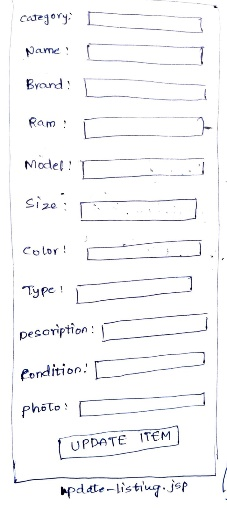 Category:
Name:
Brand:
Ram:
Model:
Size:
Color:
Type:
Description:
Condition:
photo:
UPDATE ITEM
update-listing.jsp